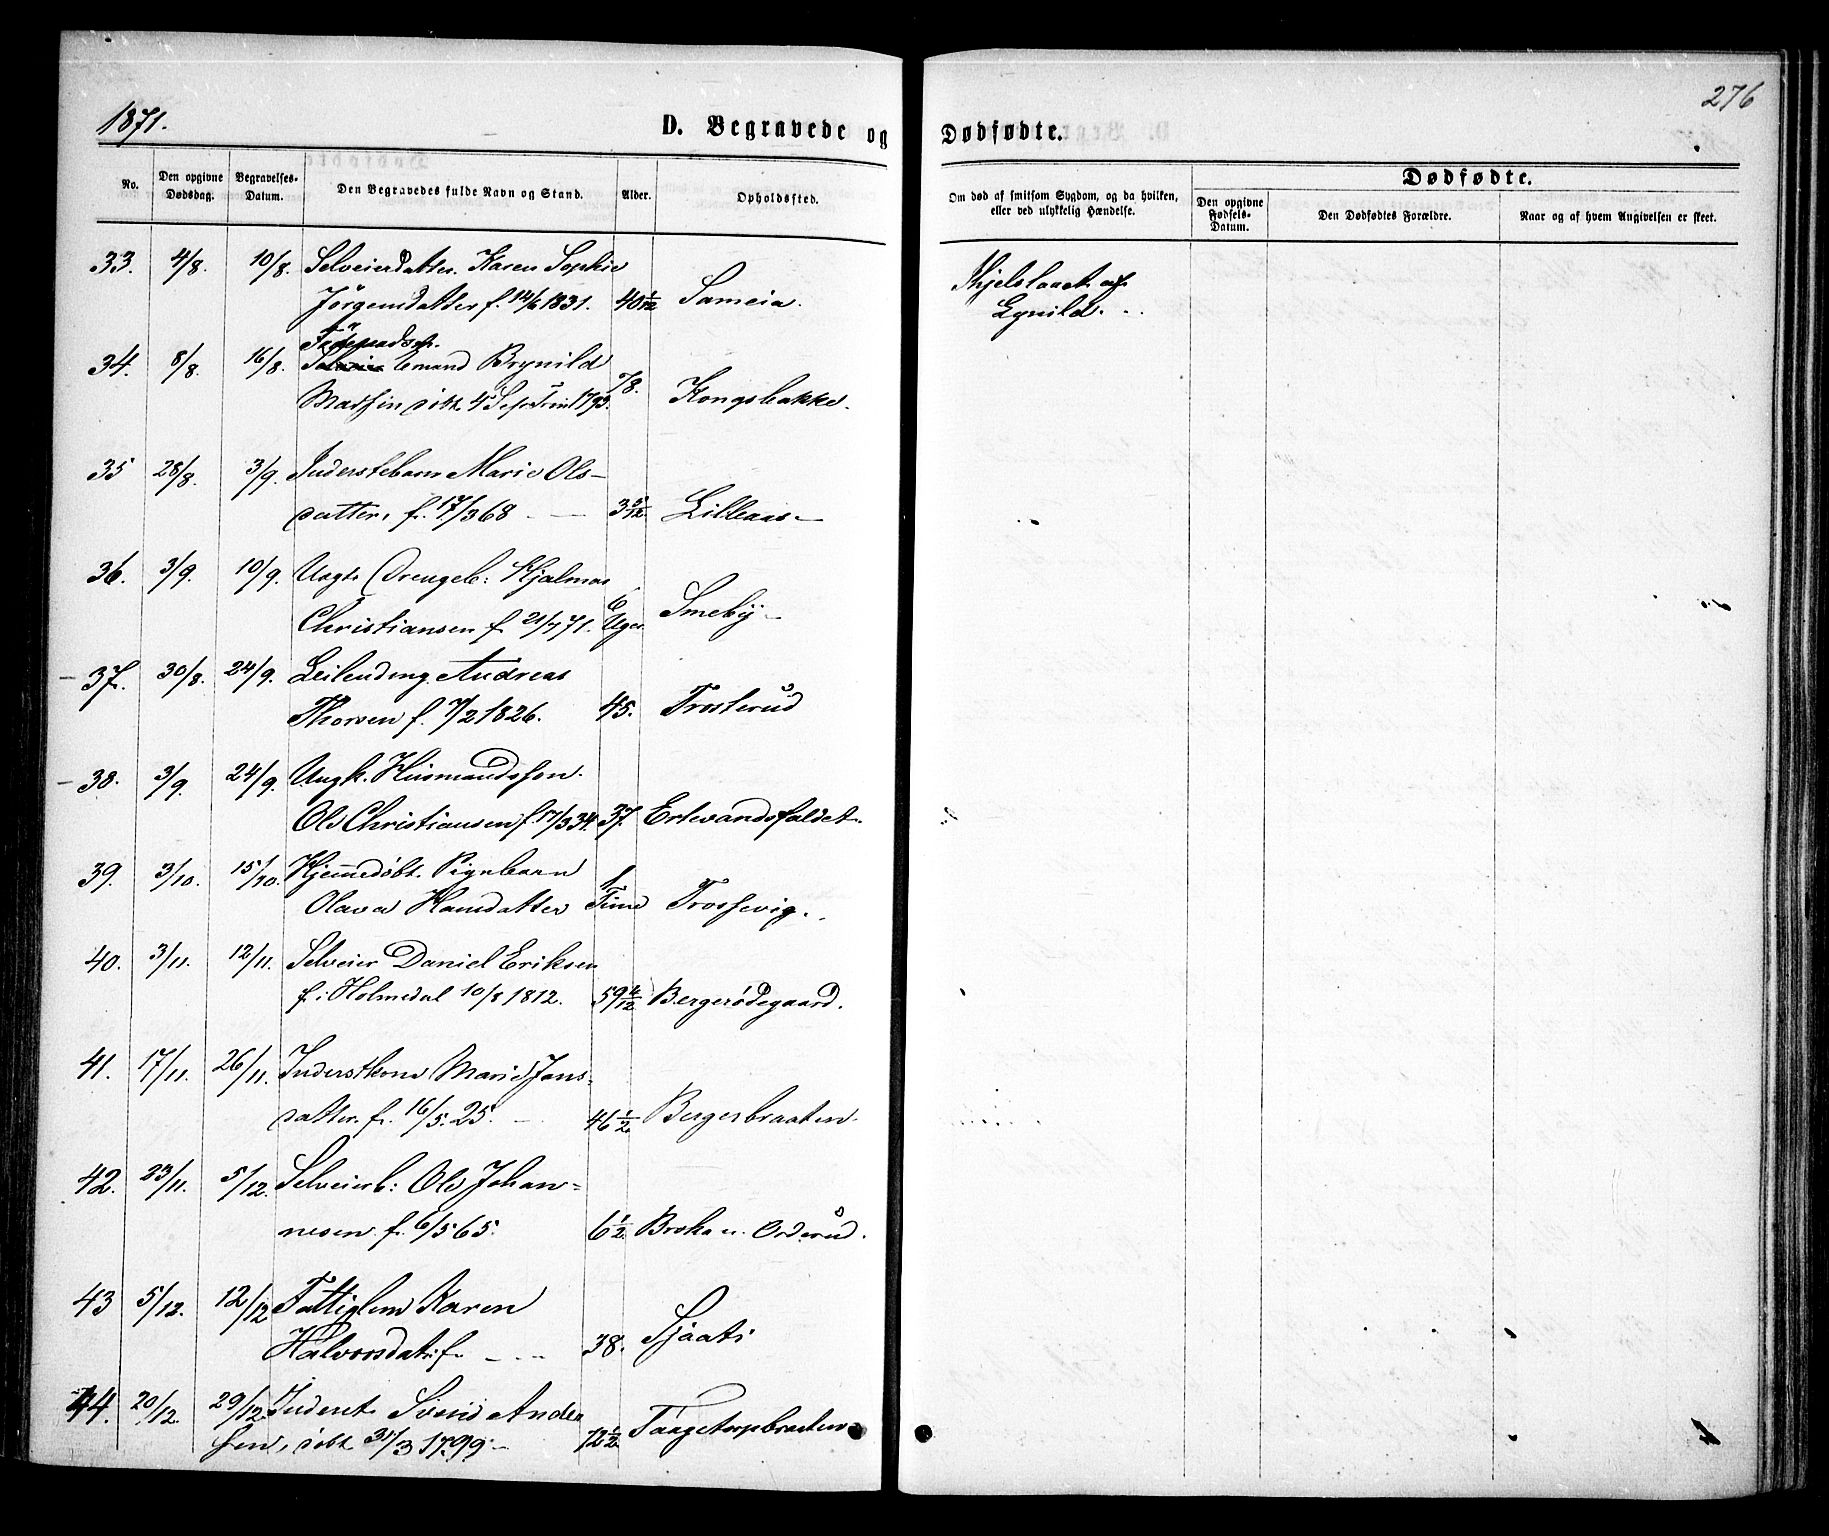 1871.
276
D. Begravede og Dødfødte.
No. Den opgivne Dødsdag. Begravelses-Datum. Den Begravedes fulde Navn og Stand. Alder. Opholdssted.
Om død af smitsom Sygdom, og da hvilken, eller ved ulykkelig Hændelse.
Dødfødte.
Den opgivne Fødsels-Datum. Den Dødfødtes Forældre. Naar og af hvem Angivelsen er skeet.
33. 4/8. 10/8. Selveierdatter. Karen Sophie
Jörgensdatter f. 14/6 1831. 40 1/12 Sameia.
Ihjelslaaet af
Lynild.
Föderaadsm.
34. 8/8. 16/8. Emand Brynild
Madsen döbt 4 S. e. Trin 1793. 78. Kongsbakke.
35 28/8. 3/9. Inderstebarn Marie Ols-
datter, f. 17/3 68 3 5/12. Lilleaas
36. 3/9. 10/9. Uægte Drengeb: Hjalmar
Christiansen f. 21/7 71. 6 Uger. Smeby
37. 30/8. 24/9. Leilending Andreas
Thorsen f. /2 1826. 45. Trosterud
38. 3/9. 24/9. Ungk. Husmandssön.
Ole Christiansen f. 17/3 34. 37. Ertevandsfaldet.
39. 3/10. 15/10. Hjemmedøbt Pigebarn
Olava Hansdatter 1 Time Trossevig.
40. 3/11. 12/11. Selveier Daniel Eriksen
f. i Holmedal 10/8 1812. 59 4/12 Bergerødegaard.
41. 17/11. 26/11. Inderstkone Marie Jans-
datter f. 16/5. 25. 46 1/2. Bergerbraaten.
42. 23/11. 5/12. Selveierb: Ole Johan-
nesen f. 6/5 65. 6 1/2 Broka u. Orderud.
43 5/12. 12/12 Fattiglem Karen
Halvorsdatter 38. Sjaati
44. 20/12. 29/12. Inderst Svend Ander
sen, döbt 31/3 1799. 72 1/2. Taagetorpbraaten